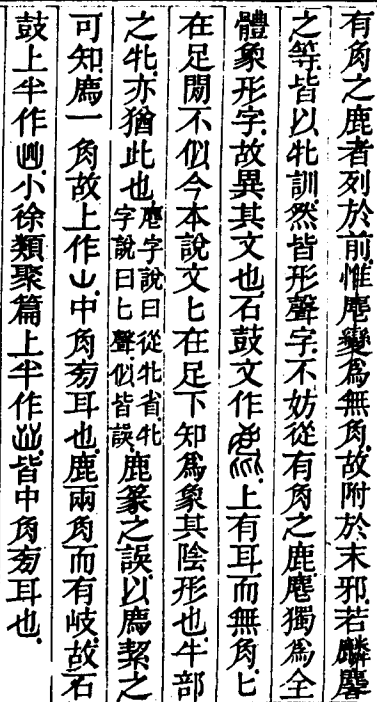 有角之鹿者列於前.惟麀變爲無角.故附於末邪.若麟麐
之等.皆以牝訓.然皆形聲字.不妨從有角之鹿.麀獨爲全
體象形字.故異其文也.石鼓文作.上有耳而無角.匕
在足閒.不似今本說文匕在足下.知爲象其陰形也.牛部
之牝.亦猶此也.麀字說曰從牝省.牝字說曰匕聲.似皆誤.鹿篆之誤.以廌絜之
可知.廌一角.故上作.中角旁耳也.鹿兩角而有岐.故石
鼓上半作.小徐類聚篇上半作.皆中角旁耳也.